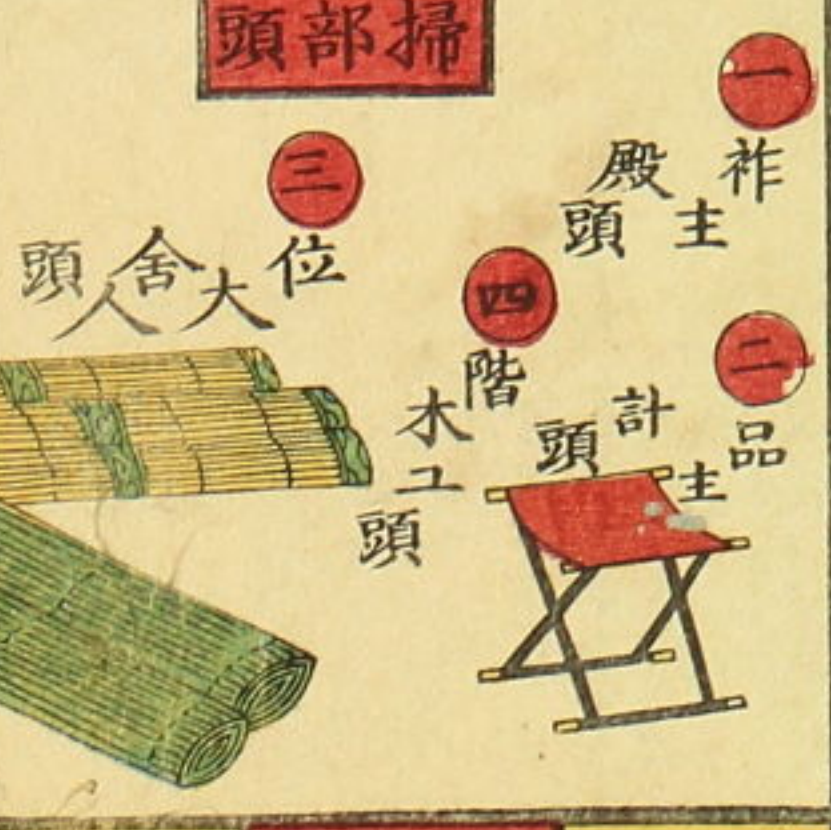 掃部頭
一
祚
主殿頭
二
品
主計頭
三
位
大舎人頭
四
階
木工頭